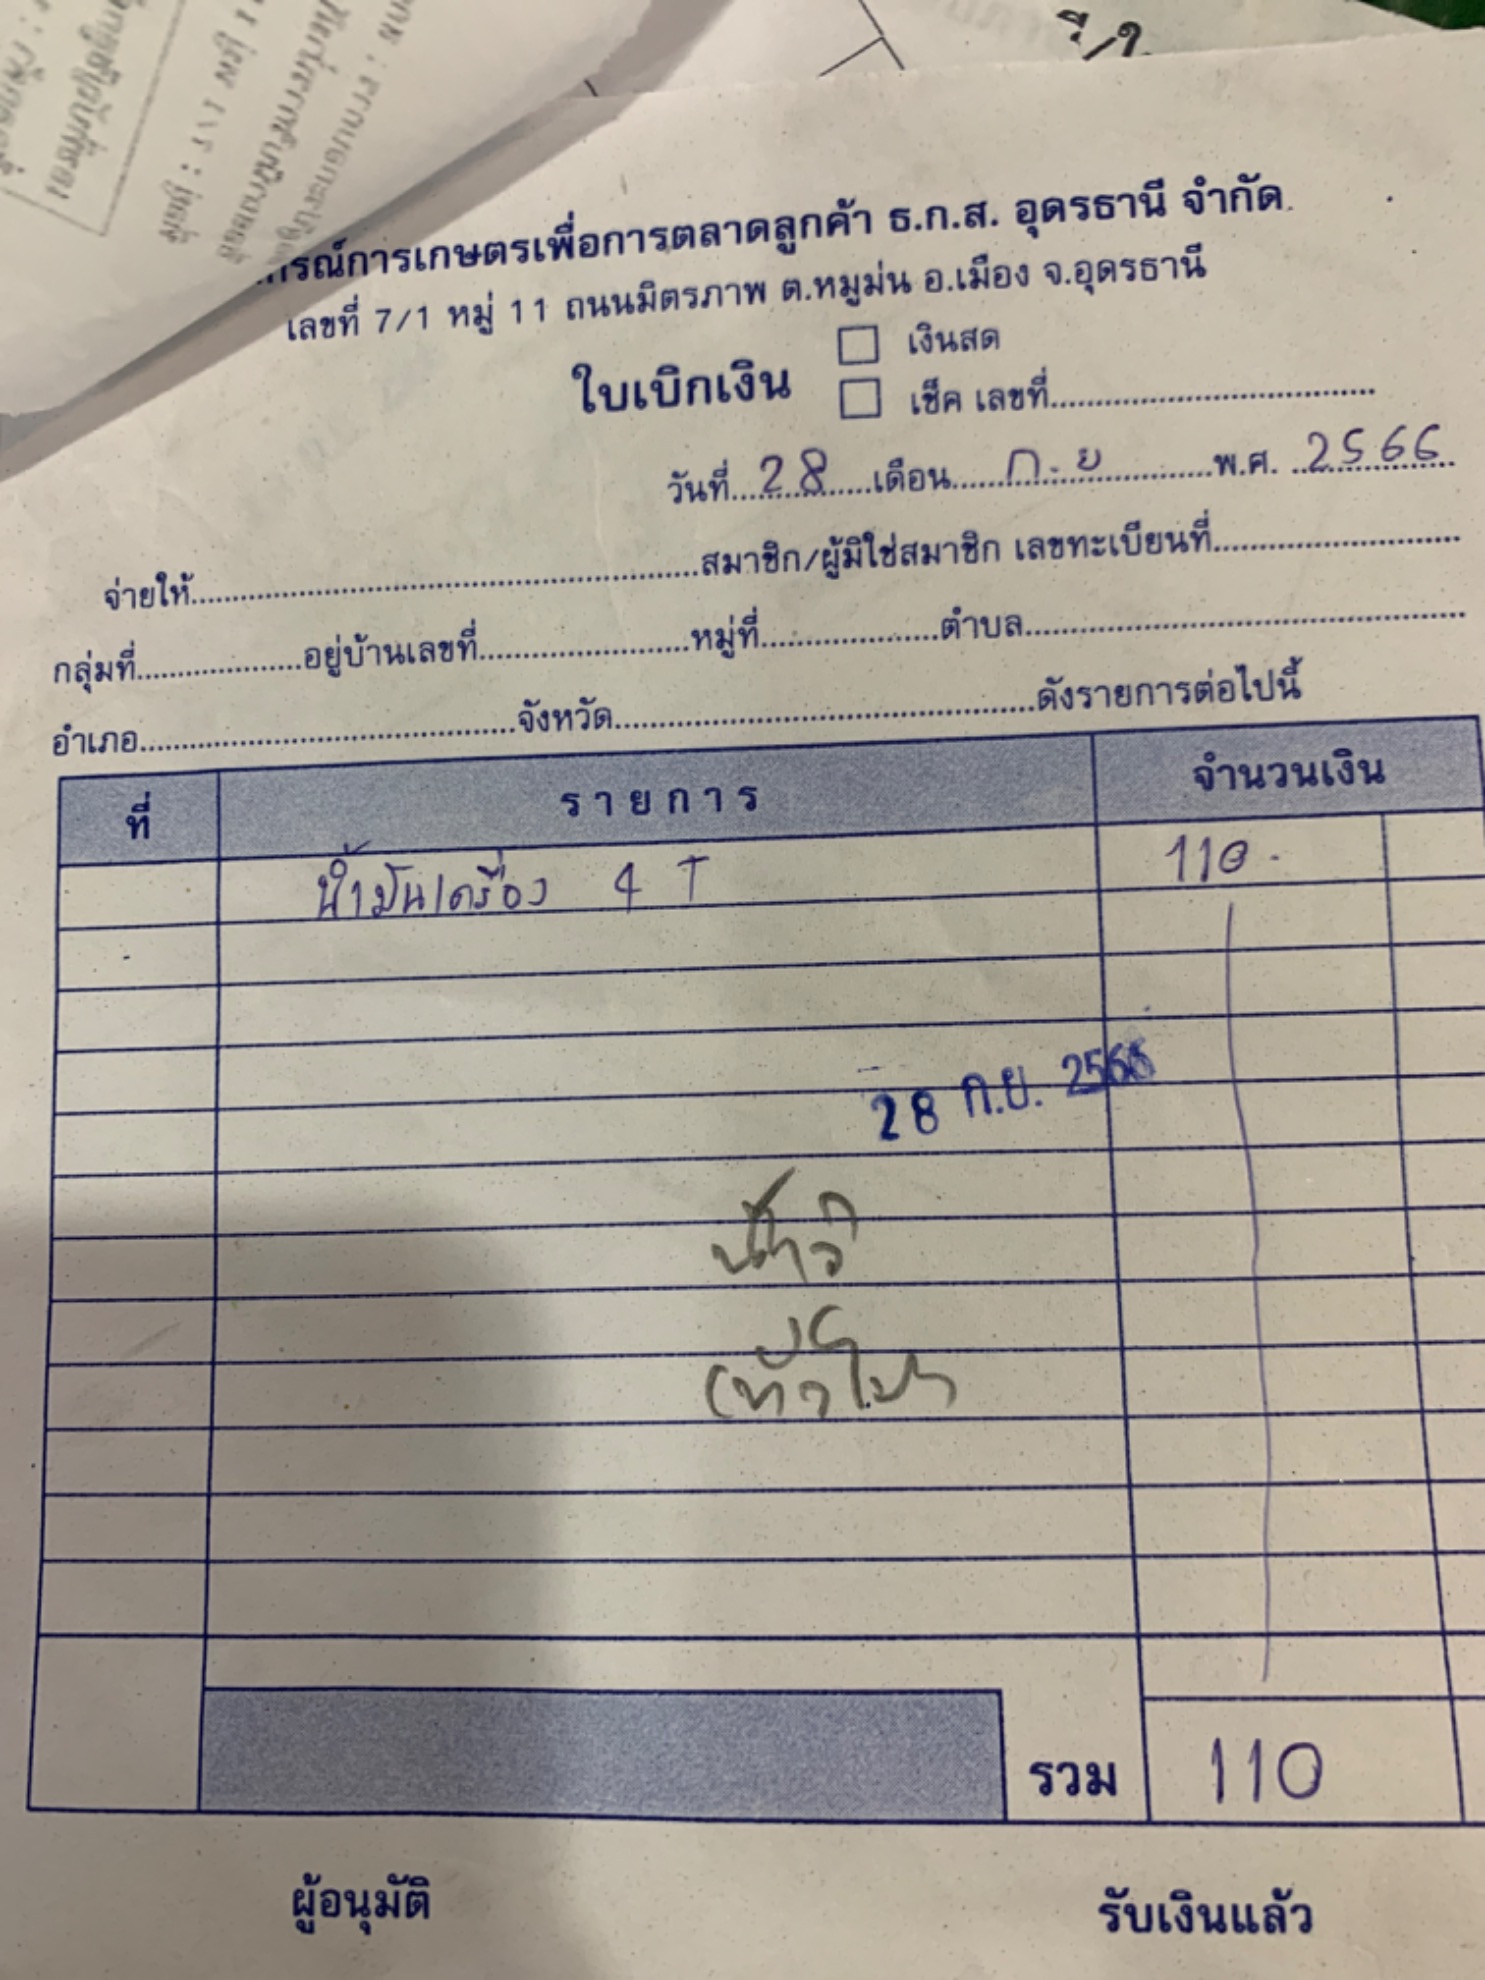 การเกษตรเพื่อการตลาดลูกค้า ธ.ก.ส. อุดรธานี จำกัด
เลขที่ 7/1 หมู่ 11 ถนนมิตรภาพ ต.หมูม่น อ.เมือง จ.อุดรธานี
ใบเบิกเงิน
เงินสด
เช็ค เลขที่
วันที่ 28 เดือน ก.ย พ.ศ. 2566
จ่ายให้ สมาชิก/ผู้มิใช่สมาชิก เลขทะเบียนที่
กลุ่มที่ อยู่บ้านเลขที่ หมู่ที่ ตำบล
อำเภอ จังหวัด ดังรายการต่อไปนี้
ที่ รายการ จำนวนเงิน
น้ำมันเครื่อง 4 T 110.
28 ก.ย. 2566
รวม 110
ผู้อนุมัติ รับเงินแล้ว